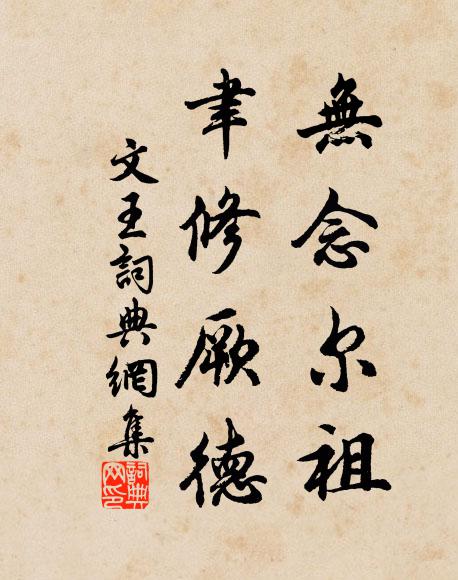 無念尔祖
聿修厥德
文王詞典網集
詞典网印